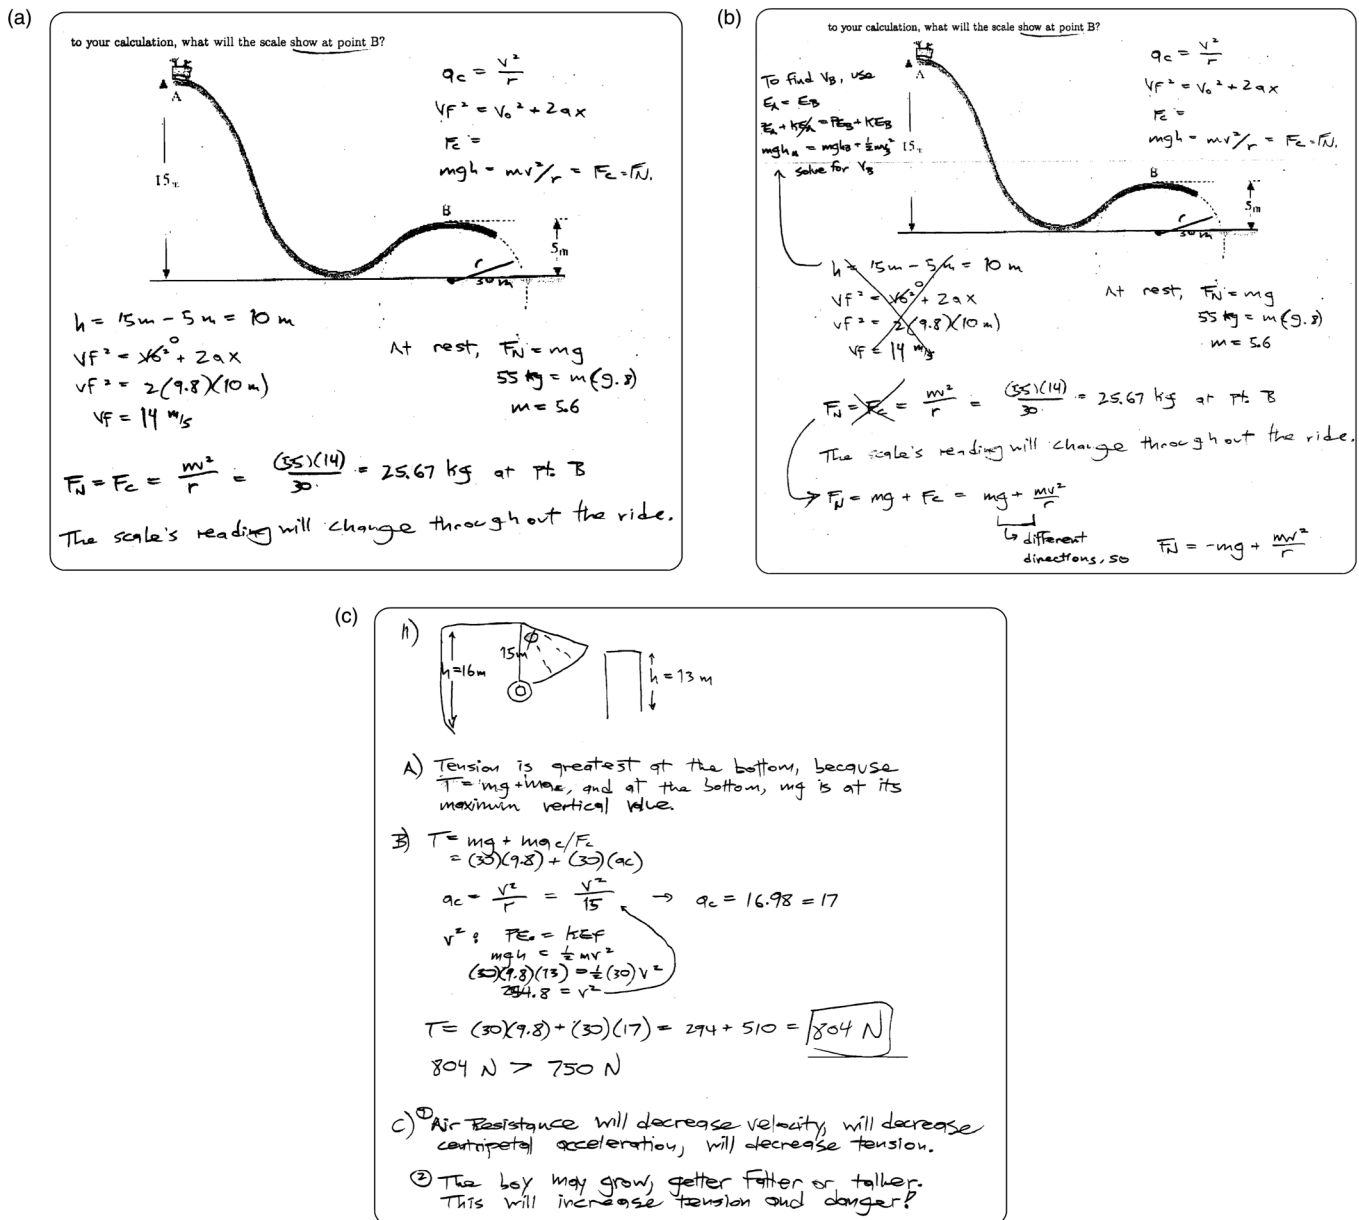 (a)
to your calculation, what will the scale show at point B?
A
15m
B
r
30 m
5m
a_c = v²/r
vf² = v₀² + 2ax
F_c =
mgh = mv²/r = F_c = F_N.
h = 15m - 5m = 10 m
vf² = v₀² 0 + 2ax
vf² = 2(9.8)(10 m)
vf = 14 m/s
At rest, F_N = mg
55 kg = m(9.8)
m = 5.6
F_N = F_c = mv²/r = (55)(14)/30 = 25.67 kg at pt. B
The scale's reading will change throughout the ride.
(b)
to your calculation, what will the scale show at point B?
To find V_B, use
E_A = E_B
PE_A + KE_A = PE_B + KE_B
mgh_A = mgh_B + ½mv_B²
solve for V_B
A
15m
B
r
30 m
5m
a_c = v²/r
vf² = v₀² + 2ax
F_c =
mgh = mv²/r = F_c = F_N.
h = 15m - 5m = 10 m
vf² = v₀² 0 + 2ax
vf² = 2(9.8)(10 m)
vf = 14 m/s
At rest, F_N = mg
55 kg = m(9.8)
m = 5.6
F_N = F_c = mv²/r = (55)(14)/30 = 25.67 kg at pt. B
The scale's reading will change throughout the ride.
F_N = mg + F_c = mg + mv²/r
different
directions, so
F_N = -mg + mv²/r
(c)
h=16m
15m
h = 13 m
A) Tension is greatest at the bottom, because
T = mg + ma_c, and at the bottom, mg is at its
maximum vertical value.
B) T = mg + ma_c/F_c
= (30)(9.8) + (30)(a_c)
a_c = v²/r = v²/15 → a_c = 16.98 = 17
v²: PE₀ = KE_f
mgh = ½ mv²
(30)(9.8)(13) = ½(30)v²
254.8 = v²
T = (30)(9.8) + (30)(17) = 294 + 510 = 804 N
804 N > 750 N
C) ① Air Resistance will decrease velocity, will decrease
centripetal acceleration, will decrease tension.
② The boy may grow, getter fatter or taller.
This will increase tension and danger!